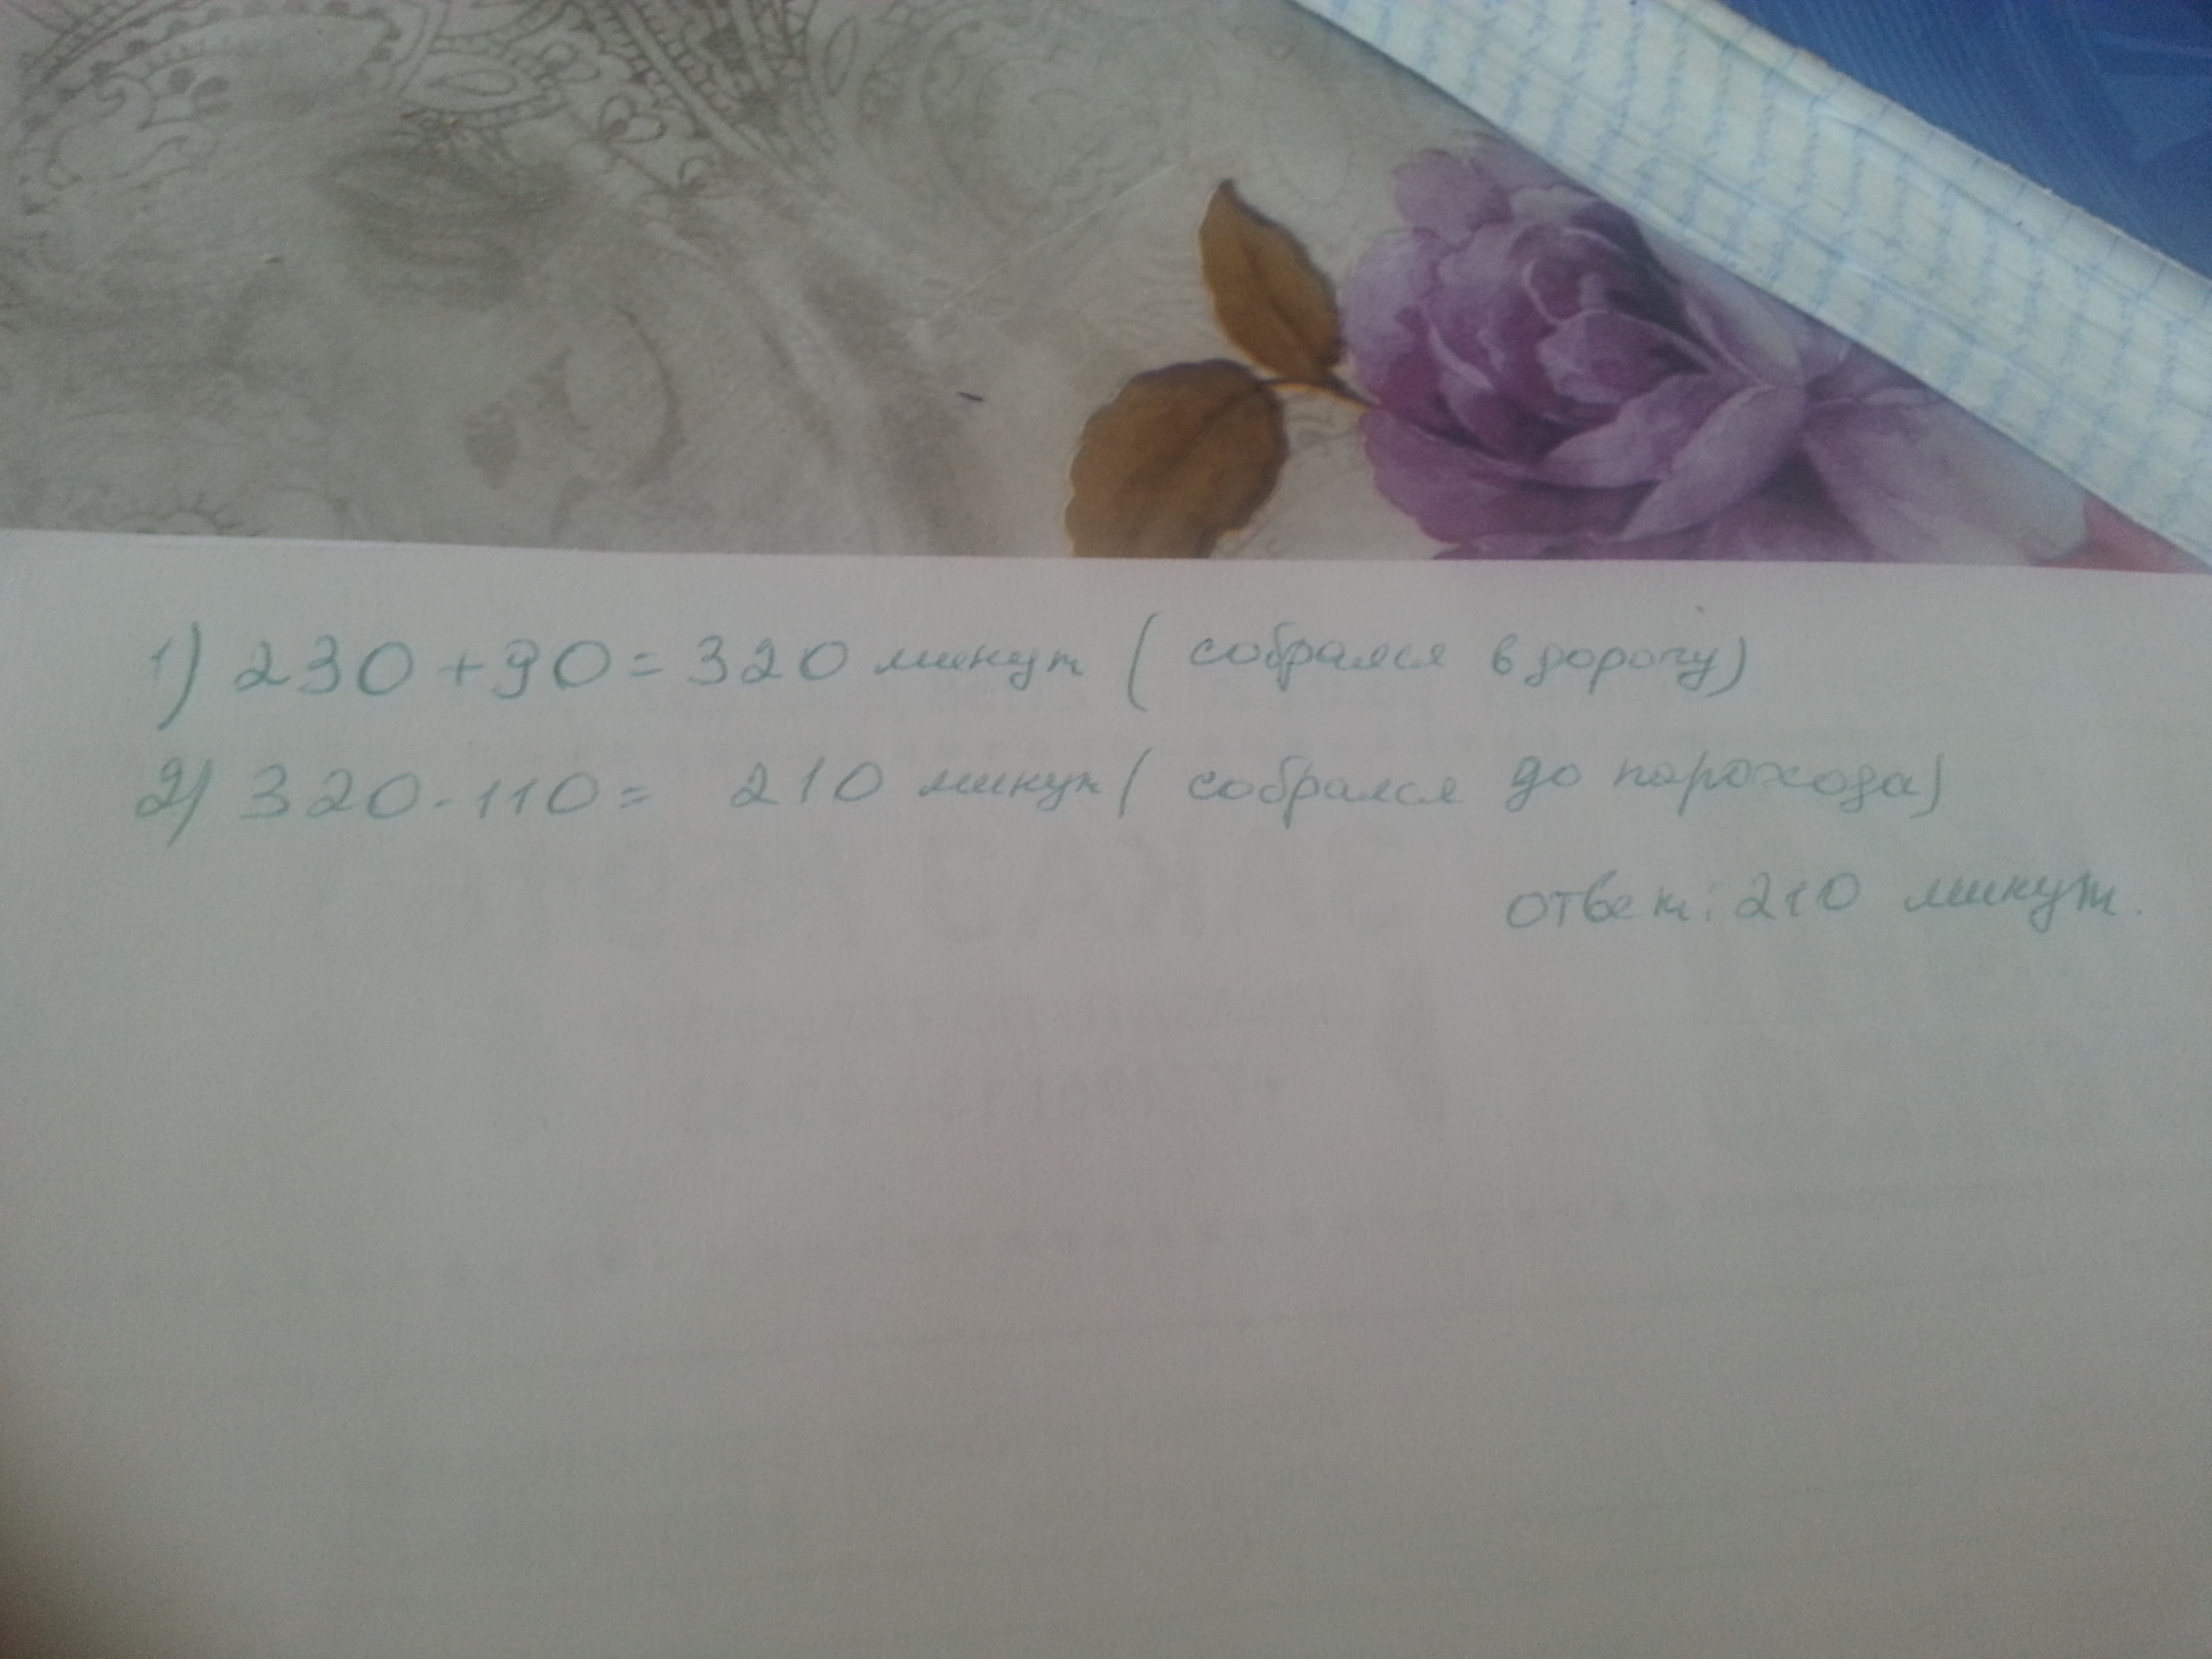 1) 230+90=320 минут ( собрался в дорогу)
2) 320-110= 210 минут ( собрался до парохода)
ответ: 210 минут.